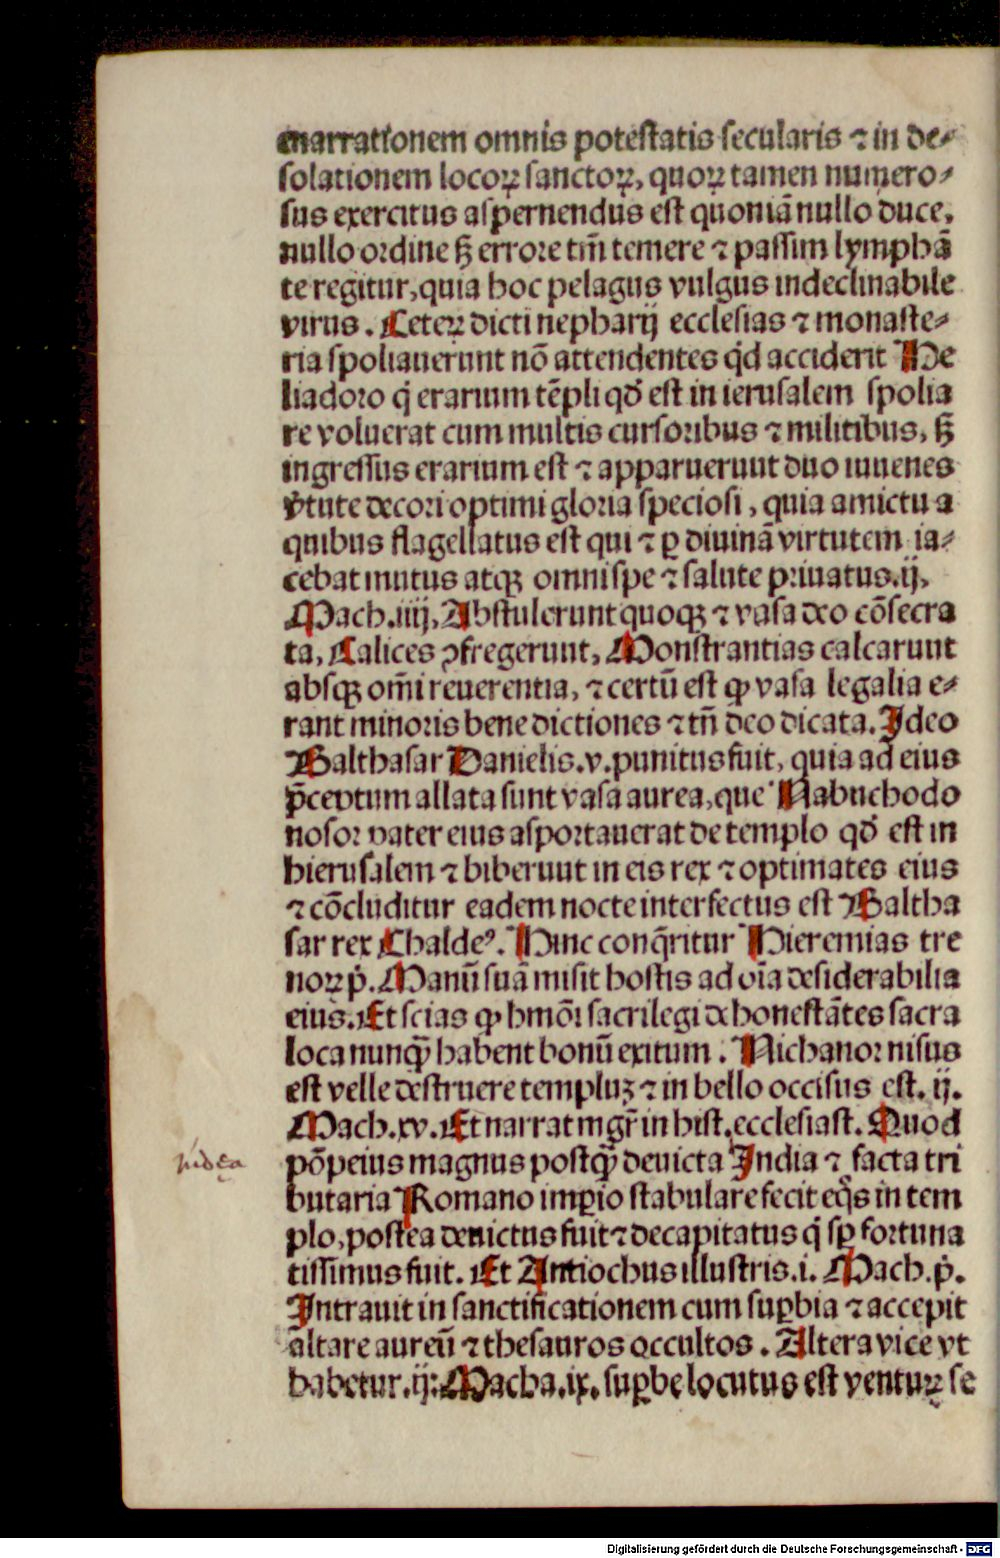 enarrationem omnis potestatis secularis ⁊ in de⸗
solationem locoꝝ sanctoꝝ, quoꝝ tamen numero⸗
sus exercitus aspernendus est quoniā nullo duce,
nullo ordine sꝫ errore tm̄ temere ⁊ passim lymphā
te regitur, quia hoc pelagus vulgus indeclinabile
virus. Ceteꝝ dicti nepharij ecclesias ⁊ monaste⸗
ria spoliauerunt nō attendentes qͥd acciderit He
liadoro qͥ erarium tēpli qd̄ est in ierusalem spolia
re voluerat cum multis cursoribus ⁊ militibus, sꝫ
ingressus erarium est ⁊ apparuerunt duo iuuenes
v̓tute decori optimi gloria speciosi, quia amictu a
quibus flagellatus est qui ⁊ ꝑ diuinā virtutem ia⸗
cebat mutus atqꝫ omni spe ⁊ salute priuatus. ij,
Mach. iiij, Abstulerunt quoqꝫ ⁊ vasa deo cōsecra
ta, Calices ꝯfregerunt, Monstrantias calcarunt
absqꝫ om̄i reuerentia, ⁊ certū est ꝙ vasa legalia e⸗
rant minoris bene dictiones ⁊ tn̄ deo dicata. Ideo
Balthasar Danielis. v. punitus fuit, quia ad eius
p̄ceptum allata sunt vasa aurea, que Nabuchodo
nosor pater eius asportauerat de templo qd̄ est in
hierusalem ⁊ biberuut in eis rex ⁊ optimates eius
⁊ cōcluditur eadem nocte interfectus est Baltha
sar rex Chaldeꝰ. Hinc conq̄ritur Hieremias tre
noꝝ p̓. Manū suā misit hostis ad oīa desiderabilia
eius. Et scias ꝙ hmōi sacrilegi dehonestātes sacra
loca nunqꝫ̄ habent bonū exitum. Nichanor nisus
est velle destruere templuꝫ ⁊ in bello occisus est. ij.
Mach. xv. Et narrat mgr̄ in hist. ecclesiast. Quod
pōpeius magnus postqꝫ̄ deuicta India ⁊ facta tri
iudea
butaria Romano imꝑio stabulare fecit eqͦs in tem
plo, postea deuictus fuit ⁊ decapitatus qͥ sꝑ fortuna
tissimus fuit. Et Antiochus illustris. i. Mach. p̓.
Intrauit in sanctificationem cum suꝑbia ⁊ accepit
altare aureū ⁊ thesauros occultos. Altera vice vt
habetur. ij: Macha. ix. suꝑbe locutus est ventuꝝ se
Digitalisierung gefördert durch die Deutsche Forschungsgemeinschaft - DFG